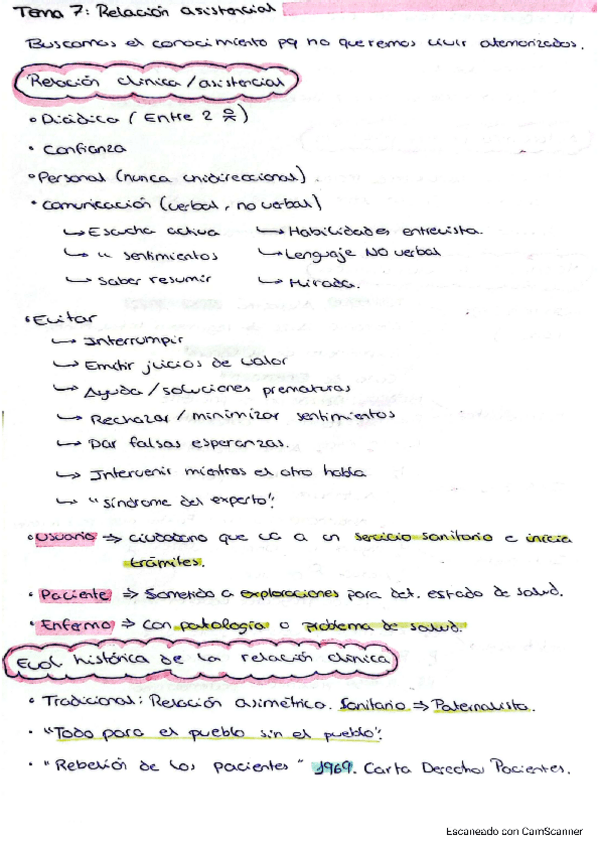 Tema 7: Relación asistencial
Buscamos el conocimiento pq no queremos vivir atemorizados.
Relación clínica / asistencial
• Diádica (Entre 2 )
• Confianza
• Personal (nunca unidireccional).
• Comunicación (verbal, no verbal)
↳ Escucha activa ↳ Habilidades entrevista.
↳ " sentimientos ↳ Lenguaje NO verbal
↳ Saber resumir ↳ Mirada.
• Evitar
↳ Interrumpir
↳ Emitir juicios de valor
↳ Ayuda / soluciones prematuras
↳ Rechazar / minimizar sentimientos
↳ Dar falsas esperanzas.
↳ Intervenir mientras el otro habla
↳ "síndrome del experto".
• Usuario ⇒ ciudadano que va a un servicio sanitario e inicia
trámites.
• Paciente ⇒ Sometido a exploraciones para det. estado de salud.
• Enfermo ⇒ con patología o problema de salud.
Evol histórica de la relación clínica
• Tradicional: Relación asimétrica. Sanitario ⇒ Paternalista.
• "Todo para el pueblo sin el pueblo".
• "Rebelión de los pacientes" 1969. Carta Derechos Pacientes.
Escaneado con CamScanner